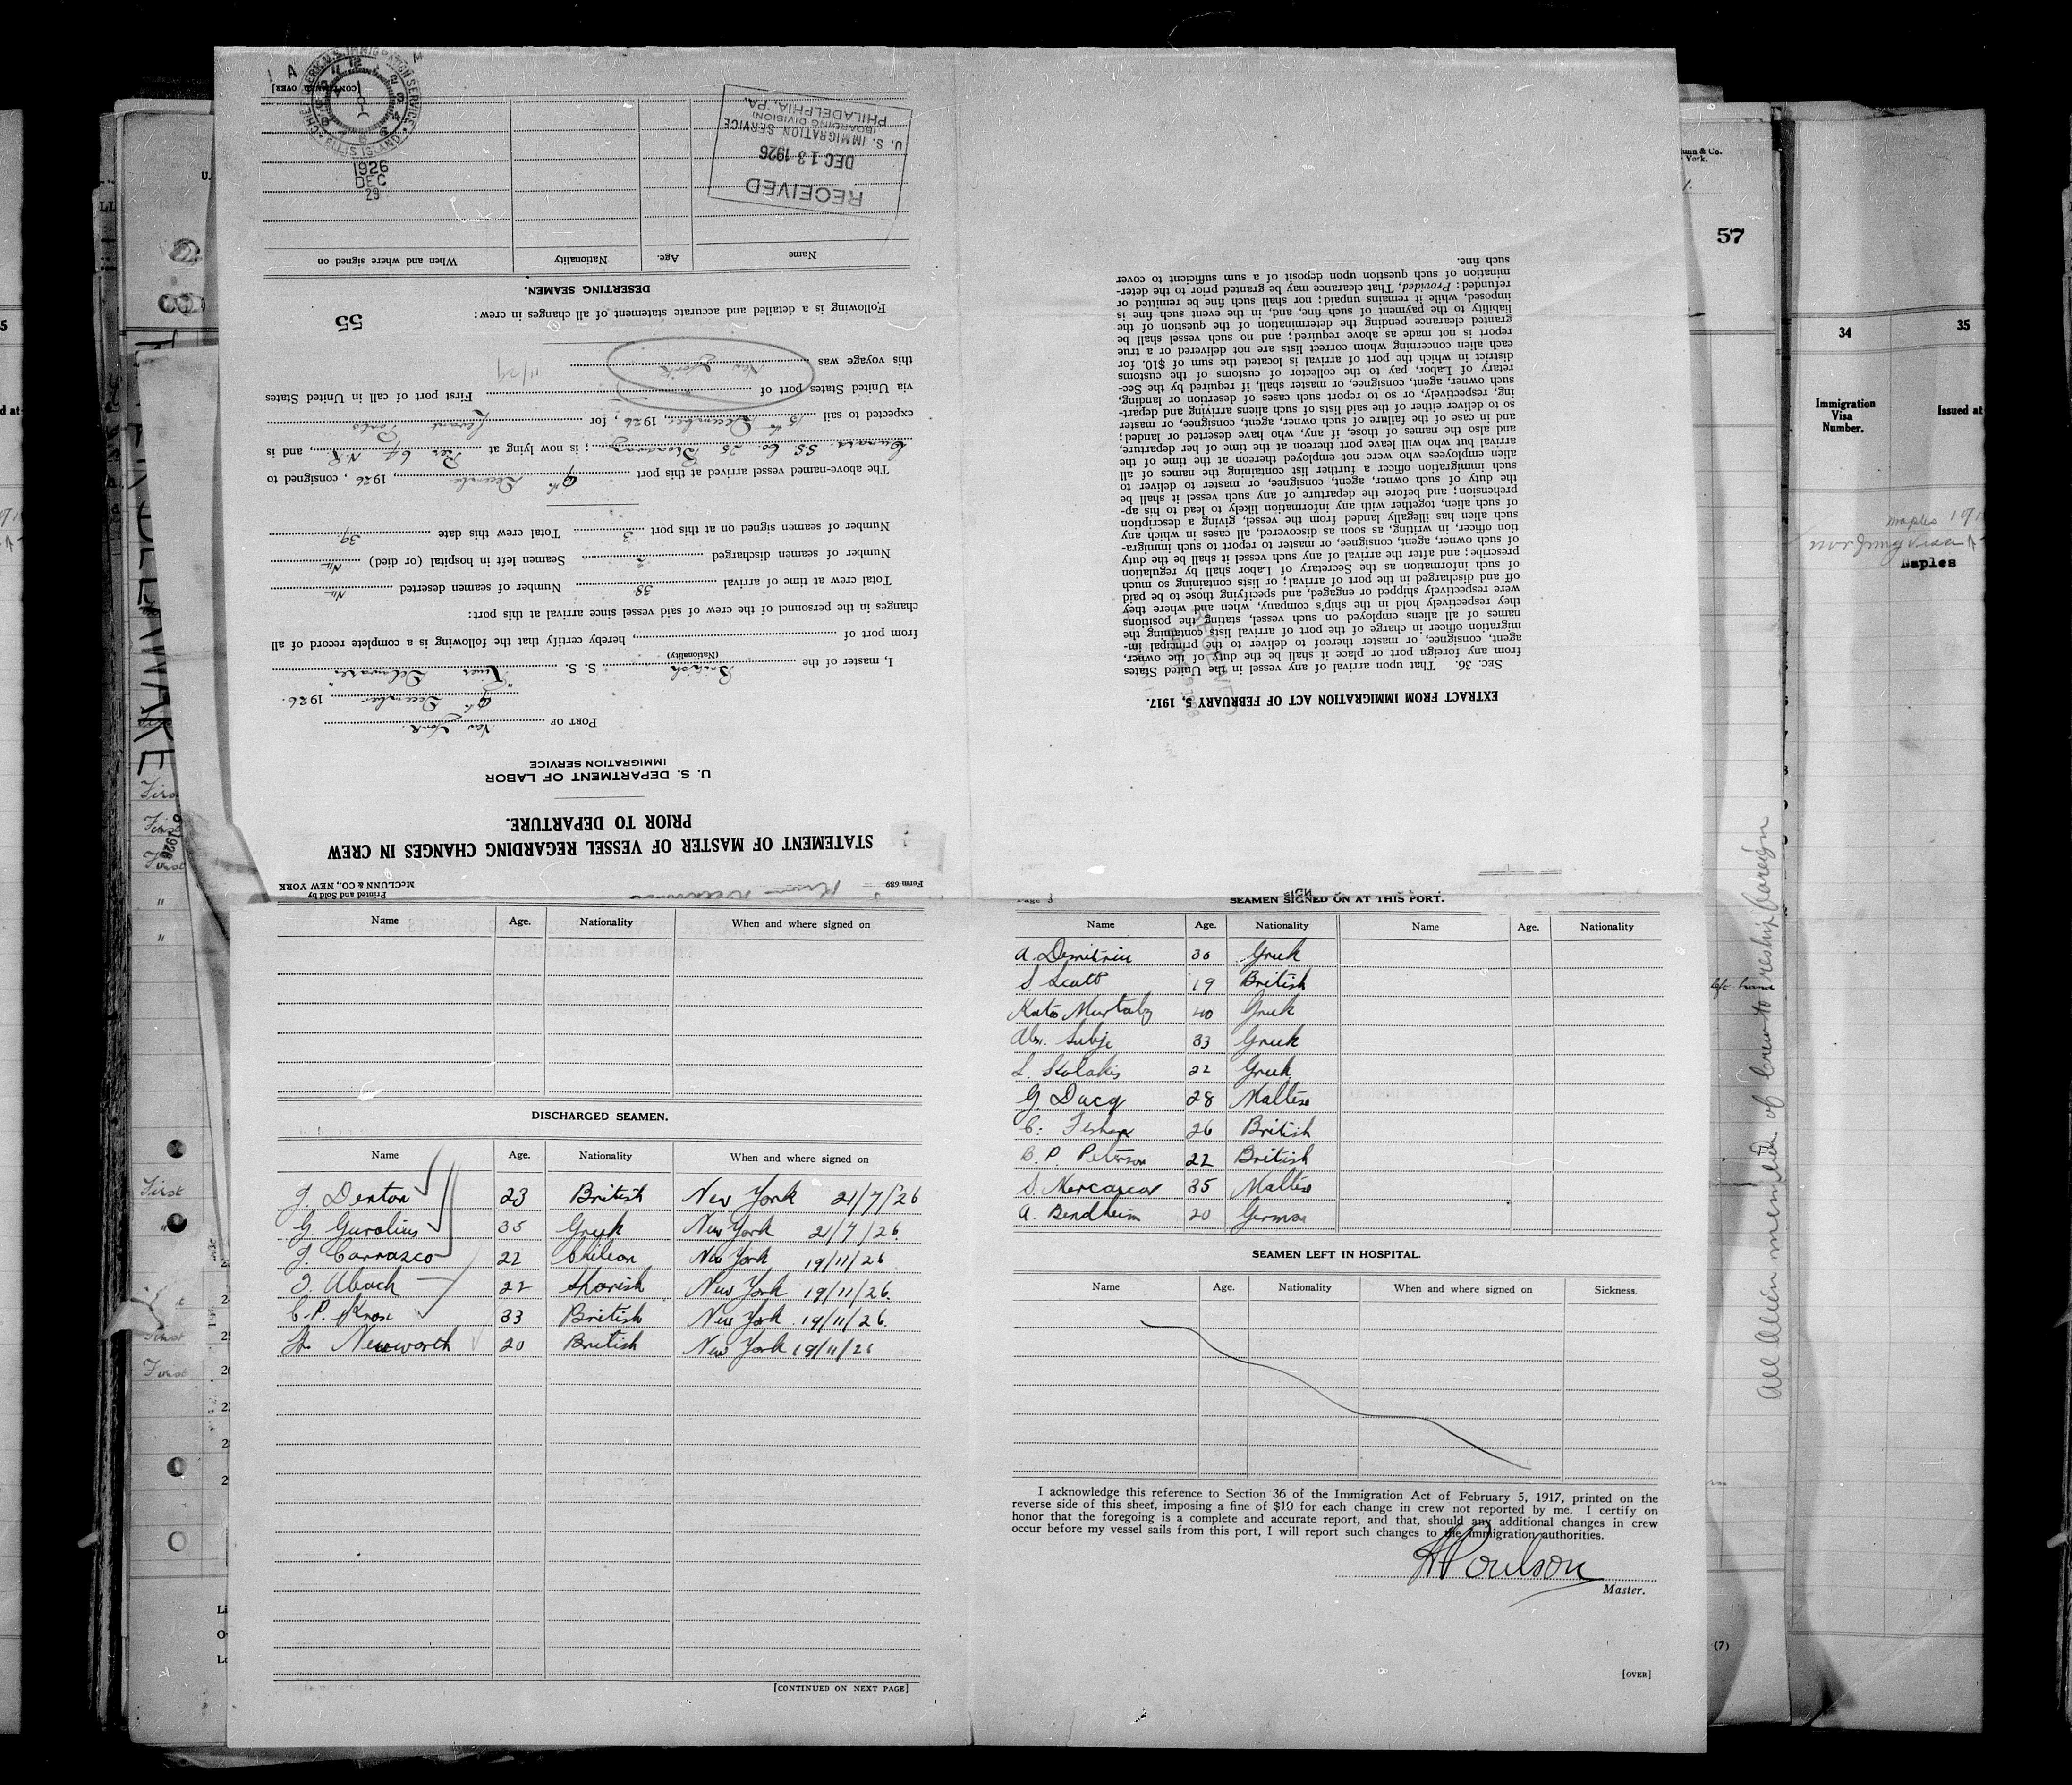 Form 689
Printed and Sold by
McCLUNN & CO., NEW YORK
STATEMENT OF MASTER OF VESSEL REGARDING CHANGES IN CREW
PRIOR TO DEPARTURE.
U. S. DEPARTMENT OF LABOR
IMMIGRATION SERVICE
PORT OF New York.
9th December 1926.
I, master of the British S. S. "River Delaware"
(Nationality)
from port of , hereby certify that the following is a complete record of all
changes in the personnel of the crew of said vessel since arrival at this port:
Total crew at time of arrival 38 Number of seamen deserted Nil
Number of seamen discharged 2 Seamen left in hospital (or died) Nil
Number of seamen signed on at this port 3 Total crew this date 39
The above-named vessel arrived at this port 9th December, 1926, consigned to
Cunard SS Co. 25 Broadway; is now lying at Pier 64 N.R., and is
expected to sail 15th December, 1926, for Levant Ports
via United States port of First port of call in United States
this voyage was New York 11/29
Following is a detailed and accurate statement of all changes in crew:
55
DESERTING SEAMEN.
Name Age. Nationality When and where signed on
RECEIVED
DEC 13 1926
U. S. IMMIGRATION SERVICE
(BOARDING DIVISION)
PHILADELPHIA, PA.
[CONTINUED OVER]
CHIEF CLERK U.S. IMMIGRATION SERVICE
ELLIS ISLAND
1926
DEC
29
EXTRACT FROM IMMIGRATION ACT OF FEBRUARY 5, 1917.
SEC. 36. That upon arrival of any vessel in the United States
from any foreign port or place it shall be the duty of the owner,
agent, consignee, or master thereof to deliver to the principal im-
migration officer in charge of the port of arrival lists containing the
names of all aliens employed on such vessel, stating the positions
they respectively hold in the ship's company, when and where they
were respectively shipped or engaged, and specifying those to be paid
off and discharged in the port of arrival; or lists containing so much
of such information as the Secretary of Labor shall by regulation
prescribe; and after the arrival of any such vessel it shall be the duty
of such owner, agent, consignee, or master to report to such immigra-
tion officer, in writing, as soon as discovered, all cases in which any
such alien has illegally landed from the vessel, giving a description
of such alien, together with any information likely to lead to his ap-
prehension; and before the departure of any such vessel it shall be
the duty of such owner, agent, consignee, or master to deliver to
such immigration officer a further list containing the names of all
alien employees who were not employed thereon at the time of the
arrival but who will leave port thereon at the time of her departure,
and also the names of those, if any, who have deserted or landed;
and in case of the failure of such owner, agent, consignee, or master
so to deliver either of the said lists of such aliens arriving and depart-
ing, respectively, or so to report such cases of desertion or landing,
such owner, agent, consignee, or master shall, if required by the Sec-
retary of Labor, pay to the collector of customs of the customs
district in which the port of arrival is located the sum of $10. for
each alien concerning whom correct lists are not delivered or a true
report is not made as above required; and no such vessel shall be
granted clearance pending the determination of the question of the
liability to the payment of such fine, and, in the event such fine is
imposed, while it remains unpaid; nor shall such fine be remitted or
refunded: Provided, That clearance may be granted prior to the deter-
mination of such question upon deposit of a sum sufficient to cover
such fine.
Name Age. Nationality When and where signed on
DISCHARGED SEAMEN.
Name Age. Nationality When and where signed on
J. Denton 23 British New York 21/7/26
G Gavolius 35 Greek New York 21/7/26.
J. Carrasco 22 Chilean New York 19/11/26
22 Spanish New York 19/11/26.
33 British New York 19/11/26.
Newworth 20 British New York 19/11/26
[CONTINUED ON NEXT PAGE]
Page 3
SIGN
SEAMEN SIGNED ON AT THIS PORT.
Name Age. Nationality Name Age. Nationality
A. Demitriu 30 Greek
S. Scott 19 British
Kato Murtaly 40 Greek
33 Greek
L. Skolakis 22 Greek
G. Ducq 28 Maltese
26 British
B. P. Peterson 22 British
35 Maltese
A. Bendheim 20 German
SEAMEN LEFT IN HOSPITAL.
Name Age. Nationality When and where signed on Sickness.
I acknowledge this reference to Section 36 of the Immigration Act of February 5, 1917, printed on the
reverse side of this sheet, imposing a fine of $10 for each change in crew not reported by me. I certify on
honor that the foregoing is a complete and accurate report, and that, should any additional changes in crew
occur before my vessel sails from this port, I will report such changes to the immigration authorities.
H Poulson
Master.
[OVER]
57
(7)
34
35
Immigration
Visa
Number.
Issued at
Naples
All Alien members of crew to reship foreign
First
First
First
First
First
First